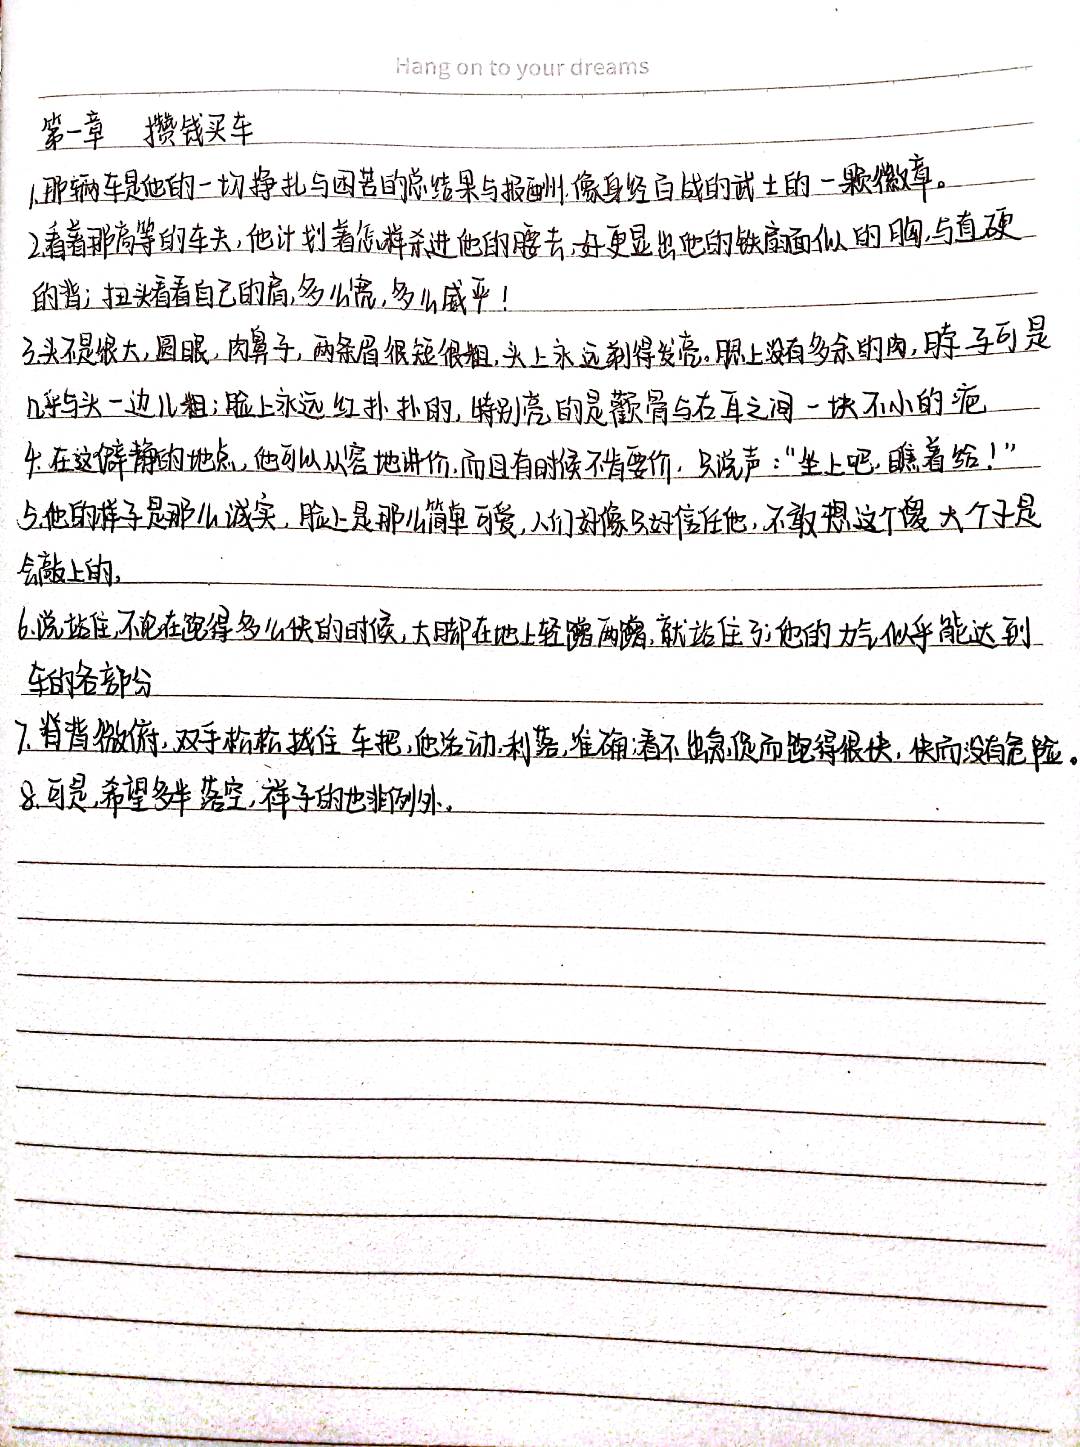 Hang on to your dreams
第一章 攒钱买车
1.那辆车是他的一切挣扎与困苦的总结果与报酬,像身经百战的武士的一颗徽章。
2.看着那高等的车夫,他计划着怎样杀进他的腰去,好更显出他的铁扇面似的胸,与直硬
的背;扭头看看自己的肩,多么宽,多么威严!
3.头不是很大,圆眼,肉鼻子,两条眉很短很粗,头上永远剃得发亮。腮上没有多余的肉,脖子可是
几乎与头一边儿粗;脸上永远红扑扑的,特别亮的是颧骨与右耳之间一块不小的疤
4.在这僻静的地点,他可以从容地讲价,而且有时候不肯要价,只说声:“坐上吧,瞧着给!”
5.他的样子是那么诚实,脸上是那么简单可爱,人们好像只好信任他,不敢想这个傻大个子是
会敲上的,
6.说站住,不论在跑得多么快的时候,大脚在地上轻蹭两蹭,就站住了;他的力气似乎能达到
车的各部分
7.脊背微俯,双手松松拢住车把,他活动,利落,准确;看不出急促而跑得很快,快而没有危险。
8.可是,希望多半落空,祥子的也非例外。